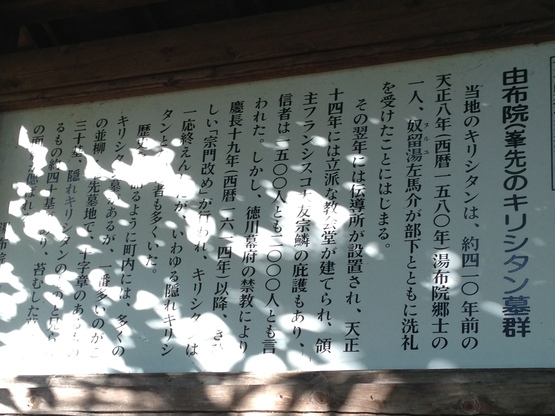 由布院(峯先)のキリシタン墓群
当地のキリシタンは、約四一〇年前の
天正八年(西暦一五八〇年)湯布院郷士の
一人、奴留湯左馬介が部下とともに洗礼
を受けたことにはじまる。
その翌年には伝導所が設置され、天正
十四年には立派な教会堂が建てられ、領
主フランシスコ大友宗麟の庇護もあり、
信者は一五〇〇人とも二〇〇〇人とも言
われた。しかし、徳川幕府の禁教により
慶長十九年(西暦一六一四年)以降、き
しい「宗門改め」が行われ、キリシタンは
一応終えんしたが、いわゆる隠れキリシ
タンと 者も多くいた。
歴史 るように町内には、多くの
キリシ 墓があるが、一番多いのが
の並柳 先墓地で、十字章のあるもの
三十基、隠れキリシタンのものと見
るもの約四十基 あり、苔むした
の面